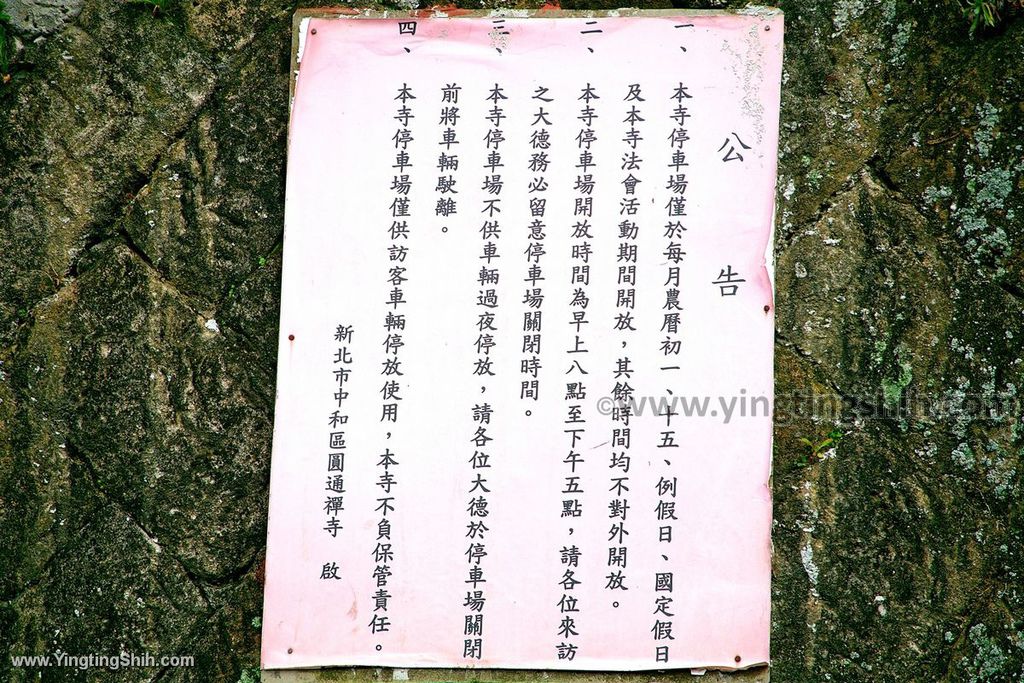 公告
一、本寺停車場僅於每月農曆初一、十五、例假日、國定假日
及本寺法會活動期間開放，其餘時間均不對外開放。
二、本寺停車場開放時間為早上八點至下午五點，請各位來訪
之大德務必留意停車場關閉時間。
三、本寺停車場不供車輛過夜停放，請各位大德於停車場關閉
前將車輛駛離。
四、本寺停車場僅供訪客車輛停放使用，本寺不負保管責任。
新北市中和區圓通禪寺 啟
©www.yingtingshih.com
www.YingtingShih.com